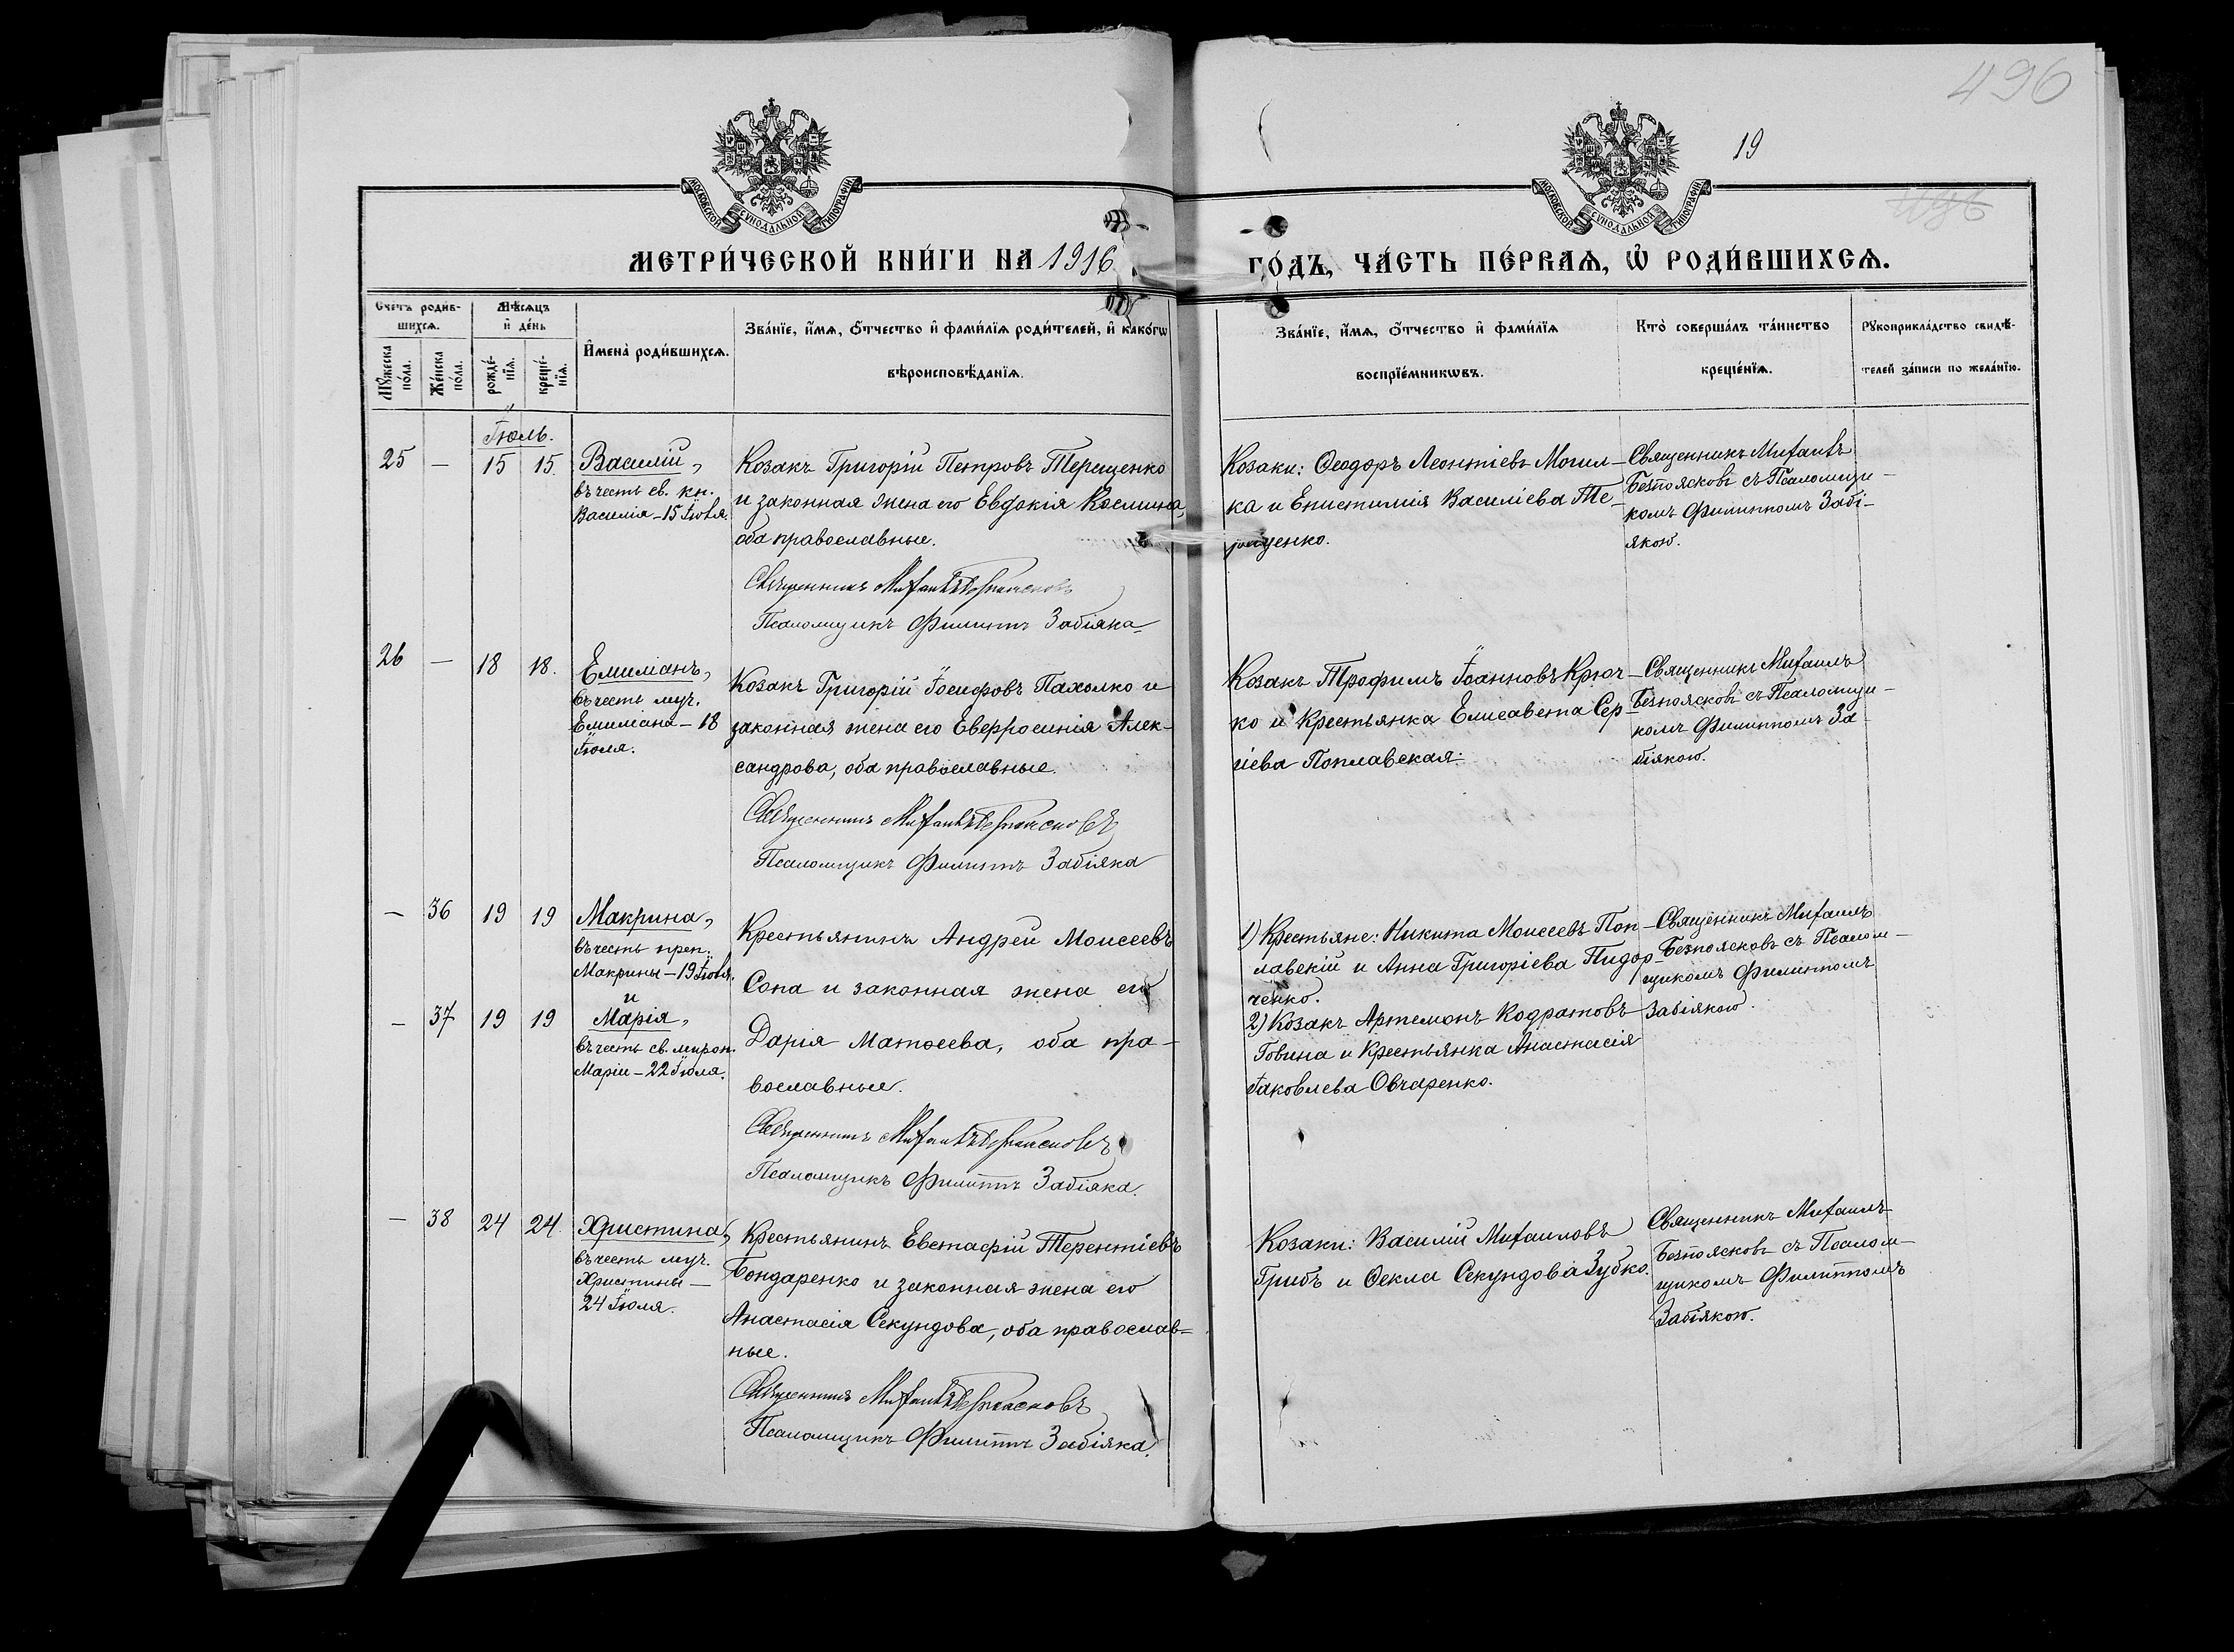 496
19
МОСКОВСКОЙ СѴНОДАЛЬНОЙ ТИПОГРАФІИ
МОСКОВСКОЙ СѴНОДАЛЬНОЙ ТИПОГРАФІИ
МЕТРИ́ЧЕСКОЙ КНИ́ГИ НА 1916
ГО́ДЪ, ЧА́СТЬ ПЕ́РВАѦ, Ѡ҆ РОДИ́ВШИХСѦ.
Сче́тъ роди́в-
шихсѧ.
Мѣ́сѧцъ
и҆ де́нь
Мꙋ́жеска по́ла.
Же́нска по́ла.
рожде́-
нїѧ.
креще́-
нїѧ.
И҆мена̀ роди́вшихсѧ.
Зва́нїе, и҆́мѧ, ѻ҆́тчество и҆ фами́лїѧ роди́телей, и҆ како́гѡ
вѣроисповѣ́данїѧ.
Зва́нїе, и҆́мѧ, ѻ҆́тчество и҆ фами́лїѧ
воспрїе́мникѡвъ.
Кто̀ соверша́лъ та́инство
креще́нїѧ.
Рꙋкоприкла́дство свидѣ́-
телей за́писи по жела́нїю.
Іюль.
25 — 15 15.
Василій,
въ честь св. кн.
Василія – 15 Іюля.
Козакъ Григорій Петровъ Терещенко
и законная жена его Евдокія Космина,
оба православные.
Священникъ Михаилъ Безпоясковъ
Псаломщикъ Филиппъ Забіяка
Козаки: Ѳеодоръ Леонтіевъ Могил-
ка и Епистимія Василіева Те-
рещенко.
Священникъ Михаилъ
Безпоясковъ съ Псаломщи-
комъ Филиппомъ Забі-
якою.
26 — 18 18.
Емиліанъ,
въ честь муч.
Емиліана – 18
Іюля.
Козакъ Григорій Іосифовъ Пахолко и
законная жена его Евфросинія Алек-
сандрова, оба православные.
Священникъ Михаилъ Безпоясковъ
Псаломщикъ Филиппъ Забіяка
Козакъ Трофимъ Іоанновъ Крюч-
ко и Крестьянка Елисавета Сер-
гіева Поплавская.
Священникъ Михаилъ
Безпоясковъ съ Псаломщи-
комъ Филиппомъ За-
біякою.
— 36 19 19
Макрина,
въ честь преп.
Макрины – 19 Іюля.
и
— 37 19 19
Марія,
въ честь св. мирон.
Маріи – 22 Іюля.
Крестьянинъ Андрей Моисеевъ
Сопа и законная жена его
Дарія Матѳеева, оба пра-
вославные.
Священникъ Михаилъ Безпоясковъ
Псаломщикъ Филиппъ Забіяка.
1) Крестьяне: Никита Моисеевъ Поп-
лавскій и Анна Григоріева Пидор-
ченко.
2) Козакъ Артемонъ Кодратовъ
Говина и Крестьянка Анастасія
Іаковлева Овчаренко.
Священникъ Михаилъ
Безпоясковъ съ Псалом-
щикомъ Филиппомъ
Забіякою.
— 38 24 24.
Христина,
въ честь муч.
Христины —
24 Іюля.
Крестьянинъ Евстафій Терентіевъ
Бондаренко и законная жена его
Анастасія Секундова, оба православ-
ные.
Священникъ Михаилъ Безпоясковъ
Псаломщикъ Филиппъ Забіяка.
Козаки: Василій Михаиловъ
Грибъ и Ѳекла Секундова Зубко.
Священникъ Михаилъ
Безпоясковъ съ Псалом-
щикомъ Филиппомъ
Забіякою.